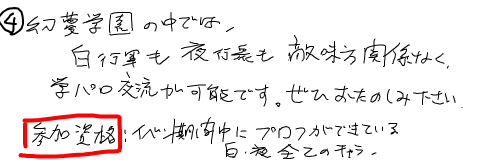 ④幻蔓学園の中では、
白行軍も夜行長も敵味方関係なく、
学パロ交流が可能です。ぜひおたのしみ下さい
参加資格:イベント期間中にプロフができている
白・夜全てのキャラ。